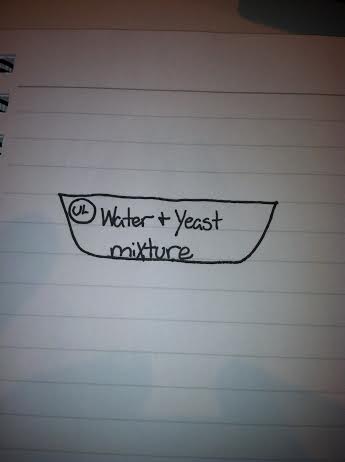 UL Water + Yeast
mixture